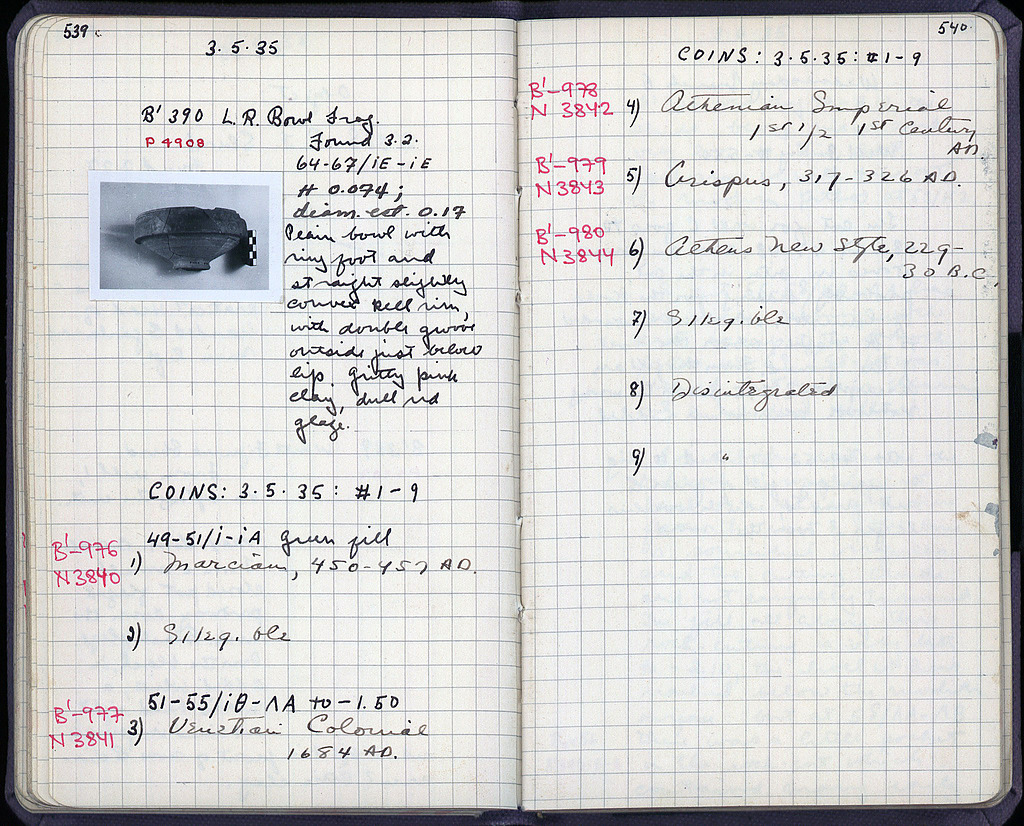 539
3·5·35
B' 390 L.R. Bowl Frag.
P 4908
Found 3.2.
64-67/ιE-ιE
H 0.074;
diam. est. 0.17
Plain bowl with
ring foot and
straight slightly
convex keel rim,
with double groove
outside just below
lip. gritty pink
clay, dull red
glaze.
COINS: 3·5·35: #1-9
49-51/ι-ιA green fill
B'-976
N3840
1) Marcian, 450-457 AD.
2) Illegible
51-55/ιθ-ΛA to -1.50
B'-977
N3841
3) Venetian Colonial
1684 AD.
540
COINS: 3·5·35: #1-9
B'-978
N 3842
4) Athenian Imperial
1st 1/2 1st Century
AD.
B'-979
N3843
5) Crispus, 317-326 AD.
B'-980
N3844
6) Athens New Style, 229-
30 B.C.
7) Illegible
8) Disintegrated
9) "